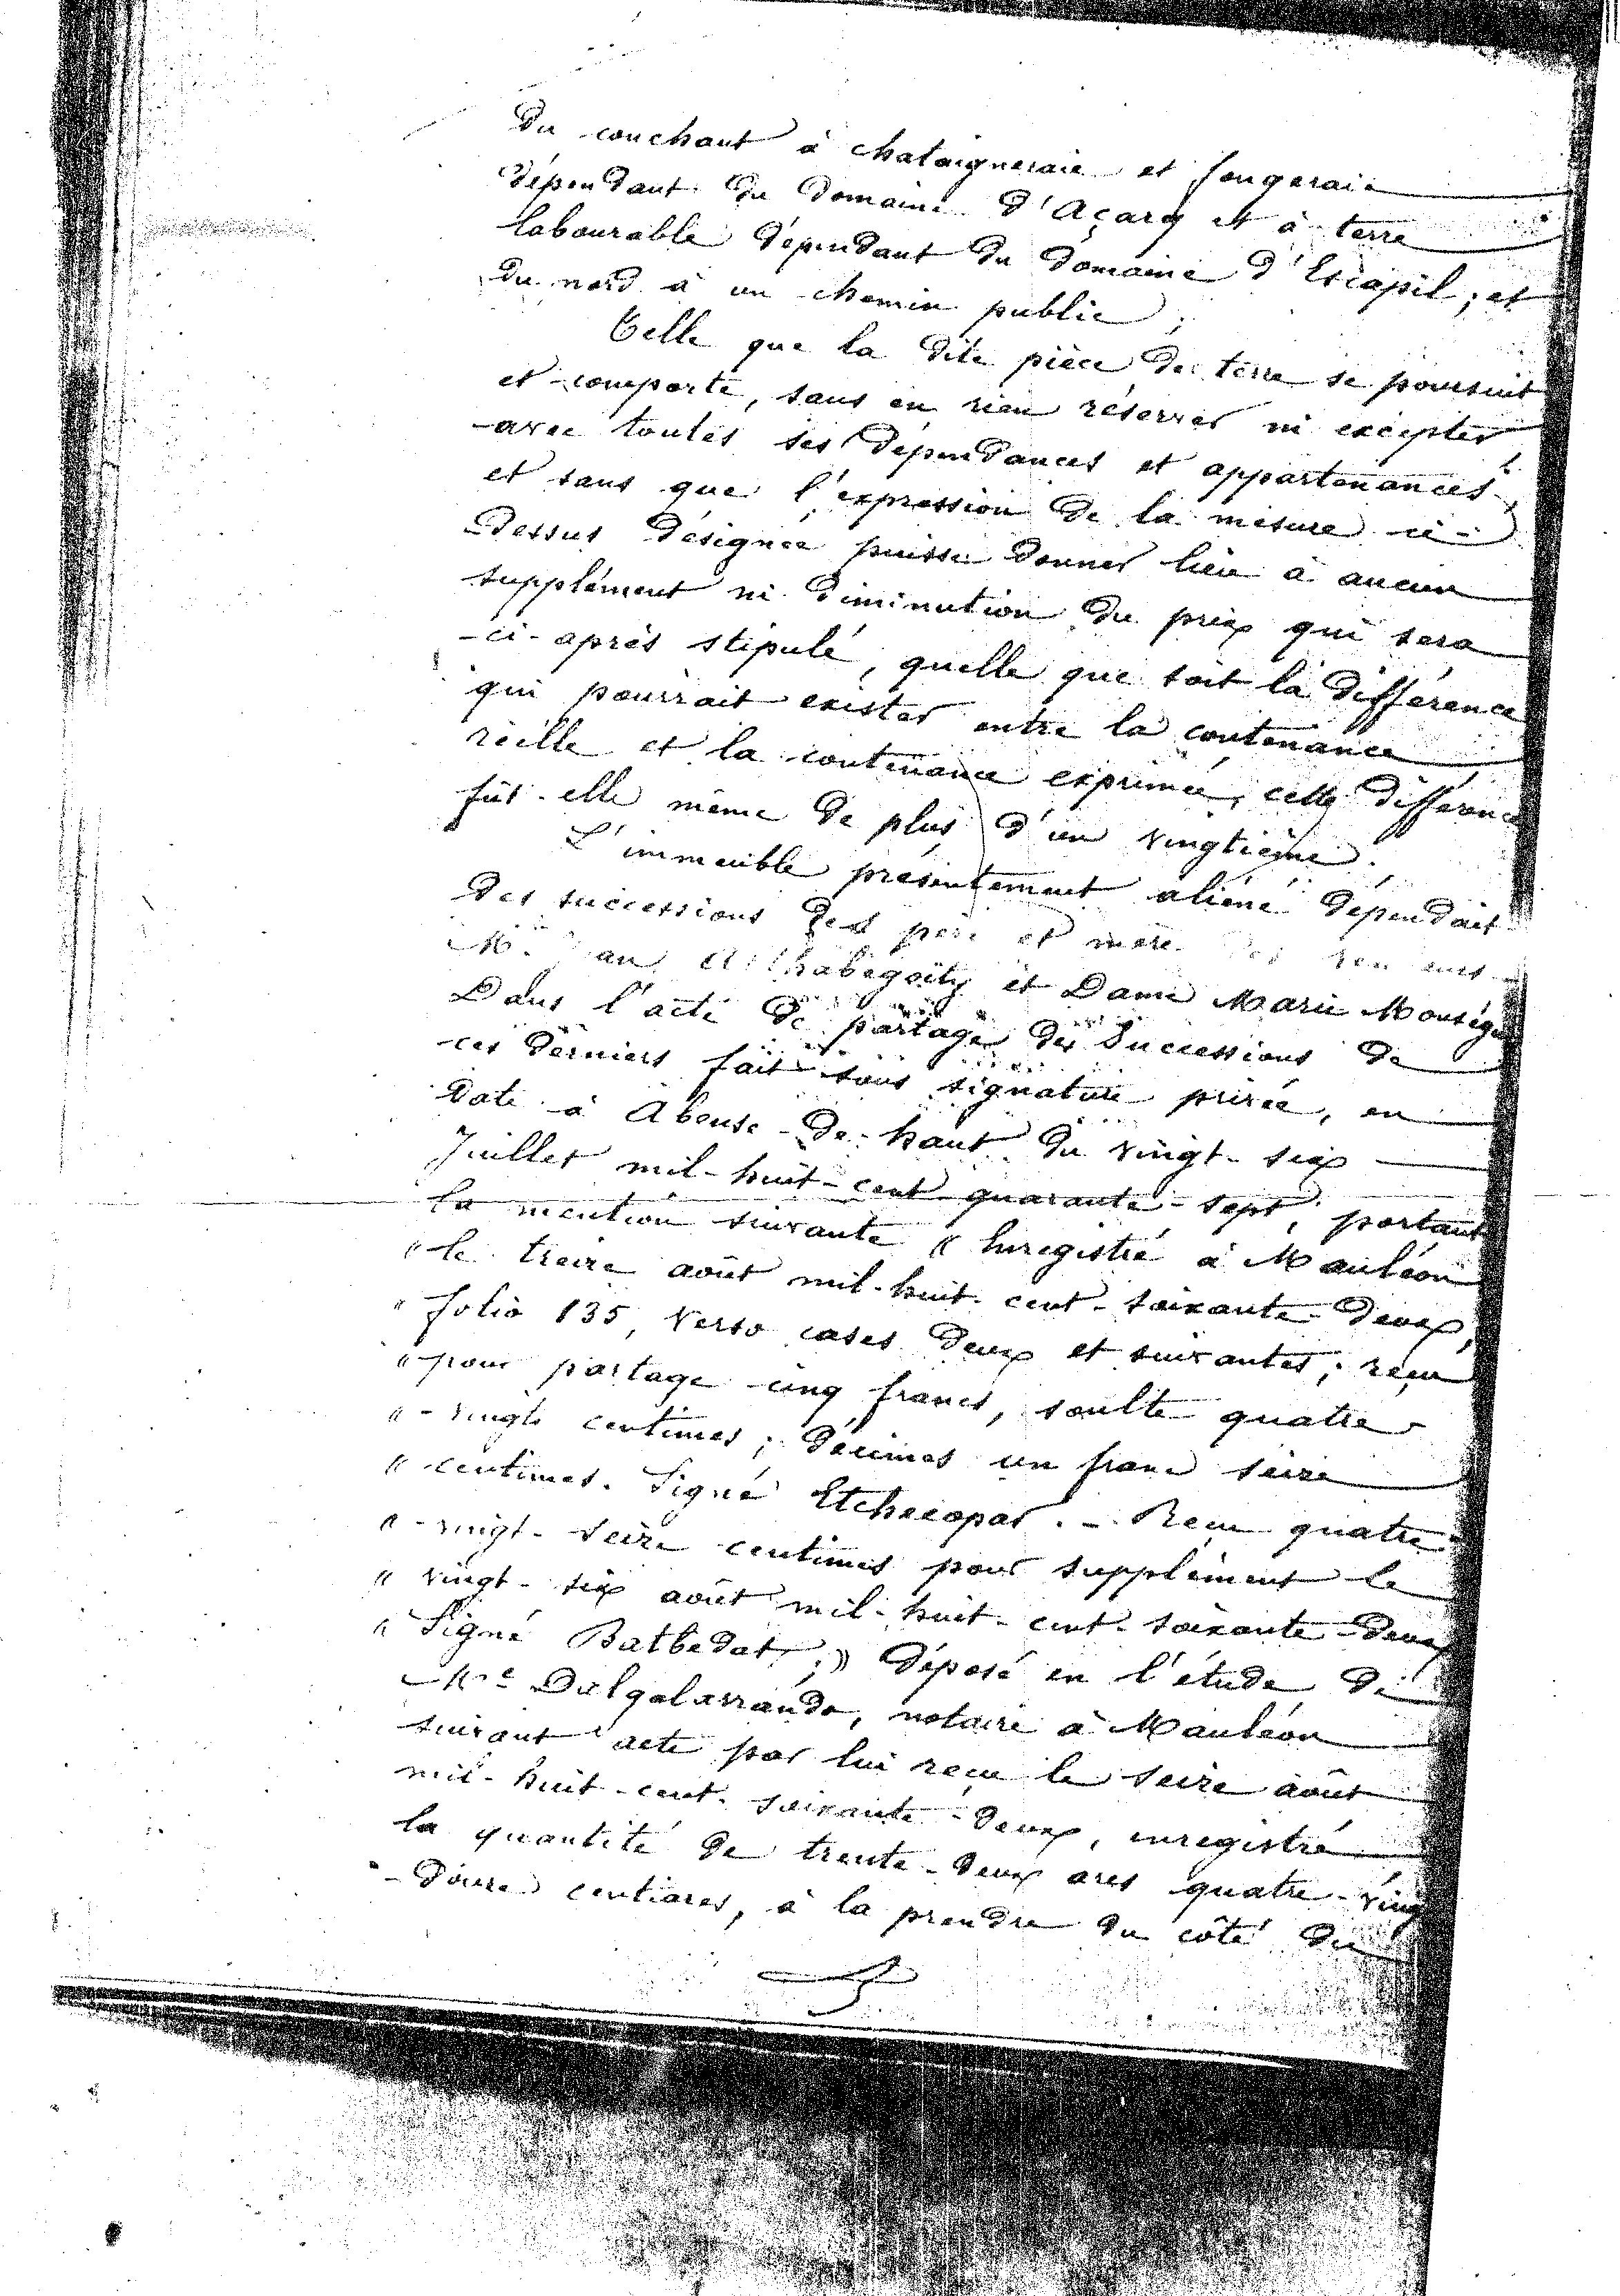 Du couchant à chataigneraie et fougeraie
dépendant du domaine d'Açarq et à terre
labourable dépendant du domaine d'Escapil; et
du nord à un chemin public;
Telle que la dite pièce de terre se poursuit
et comporte, sans en rien réserver ni excepter
avec toutes ses dépendances et appartenances,
et sans que l'expression de la mesure ci-
dessus désignée puisse donner lieu à aucun
supplément ni diminution du prix qui sera
-ci-après stipulé, quelle que soit la différence
qui pourrait exister entre la contenance
réelle et la contenance exprimée, cette différence
fût-elle même de plus d'un vingtième.
L'immeuble présentement aliéné dépendait
des successions des père et mère des
M. et Dame Marie
Dans l'acte de partage des Successions de
ces derniers fait sous signature privée, en
date à Abense-de-haut du vingt-six
Juillet mil-huit-cent quarante-sept, portant
la mention suivante « Enregistré à Mauléon
« le treize août mil-huit-cent-soixante-deux,
« folio 135, Verso cases deux et suivantes; reçu
« pour partage cinq francs, soulte quatre
« -vingts centimes; décimes un franc seize
« centimes. Signé Etchecopar. - Reçu quatre
« -vingt-seize centimes pour supplément le
« vingt-six août mil-huit-cent-soixante-deux
« Signé Batbedat;» déposé en l'étude de
Me Dalgalarrando, notaire à Mauléon
suivant acte par lui reçu le seize août
mil-huit-cent-soixante-deux, enregistré
la quantité de trente-deux ares quatre-ving
-douze centiares, à la prendre du côté du